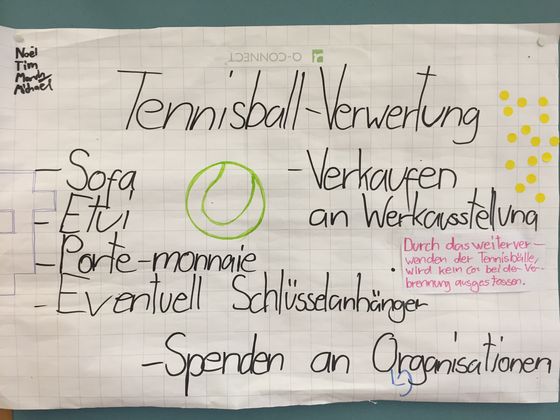 Noël
Tim
Mandy
Michael
Q-CONNECT
Tennisball-Verwertung
- Sofa
- Etui
- Porte-monnaie
- Eventuell Schlüsselanhänger
- Verkaufen
an Werkausstellung
Durch das weiterver-
wenden der Tennisbälle,
wird kein CO₂ bei der Ver-
brennung ausgestossen.
- Spenden an Organisationen